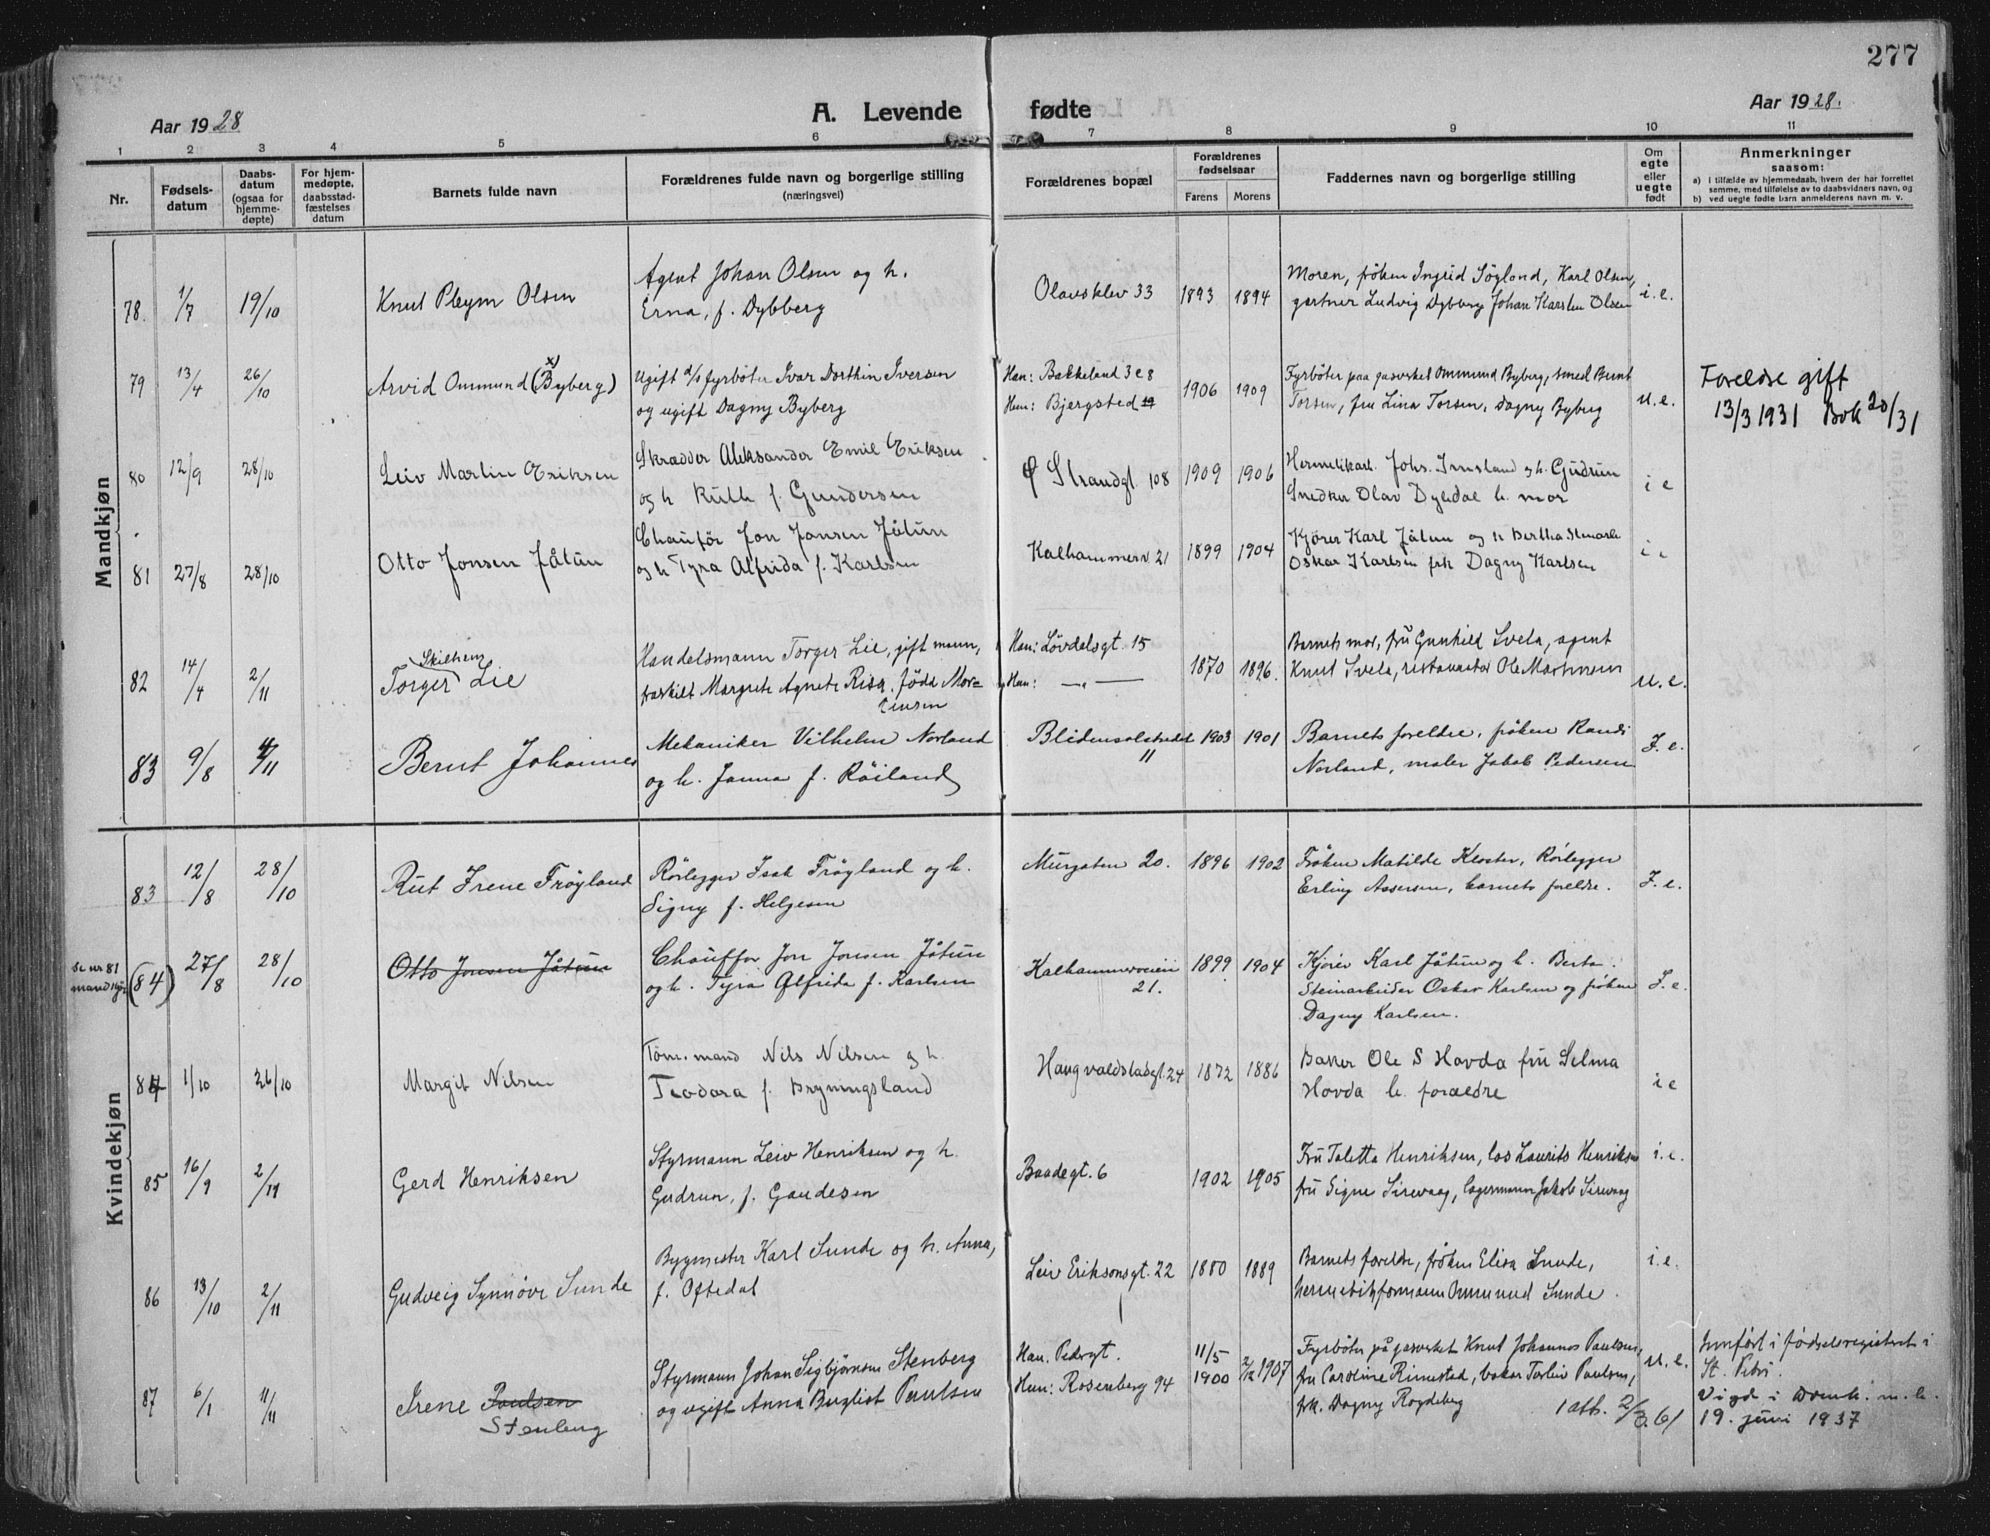 277
Aar 1928
A. Levende fødte
Aar 1928.
1 2 3 4 5 6 7 8 9 10 11
Nr.
Fødsels-
datum
Daabs-
datum
(ogsaa for
hjemme-
døpte)
For hjem-
medøpte,
daabsstad-
fæstelses
datum
Barnets fulde navn
Forældrenes fulde navn og borgerlige stilling
(næringsvei)
Forældrenes bopæl
Forældrenes
fødselsaar
Farens Morens
Faddernes navn og borgerlige stilling
Om
egte
eller
uegte
født
Anmerkninger
saasom:
a) i tilfælde av hjemmedaab, hvem der har forrettet
semme, med tilføielse av to daabsvidners navn, og
b) ved uegte fødte barn anmelderens navn m. v.
Mandkjøn
78. 1/7 19/10 Knut Pleym Olsen
Agent Johan Olsen og h.
Erna, f. Dybberg
Olavsklev 33 1893 1894
Moren, frøken Ingrid Søgland, Karl Olsen,
gartner Ludvig Dybberg Johan Karsten Olsen
i. e.
79 13/4 26/10 Arvid Ommund (Byberg) x)
Ugift d/s fyrbøter Ivar Dorthin Iversen
og ugift Dagny Byberg
Han: Bakkeland 3 e 8
Hun: Bjergsted 19
1906 1909
Fyrbøter paa gasverket Ommund Byberg, smed Bernt
Torsen, fru Lina Torsen, Dagny Byberg
u. e.
Foreldre gift
13/3 1931 Bok 20/31
80 12/9 28/10 Leiv Martin Eriksen
Skrædder Aleksander Emil Eriksen
og h Ruth f. Gundersen
Ø Strandgt 108 1909 1906
Hermetikarb. Johs. Imsland og h. Gudrun
Snedker Olav Dybdal b. mor
i e
81 27/8 28/10 Otto Jonsen Jåtun
Chauffør Jon Jonsen Jåtun
og h Tyra Alfrida f. Karlsen
Kalhammerv 21 1899 1904
Kjører Karl Jåtun og h Bertha Stenarb
Oskar Karlsen frk Dagny Karlsen
i e
82 14/4 2/11 Torger Skilhem Lie
Handelsmann Torger Lie, gift mann,
fraskilt Margrete Agnete Risa, født Mor-
tensen
Han: Løvdalsgt. 15
Hun: —„—
1870 1896.
Barnets mor, fru Gunhild Svela, agent
Knut Svela, restauratør Ole Mortensen
u. e.
83 9/8 4/11 Bernt Johannes
Mekaniker Vilhelm Norland
og h. Janna f. Røiland
Blidensolstredet
11
1903 1901
Barnets foreldre, frøken Randi
Norland, maler Jakob Pedersen
I. e.
Kvindekjøn
83 12/8 28/10 Rut Irene Frøyland
Rørlegger Isak Frøyland og h.
Signy f. Helgesen
Murgaten 20. 1896 1902
Frøken Matilde Kloster, Rørlegger
Erling Assersen, barnets foreldre.
I. e.
se nr 81
mandkjøn
(84) 27/8 28/10 Otto Jonsen Jåtun
Chauffør Jon Jonsen Jåtun
og h. Tyra Alfrida f. Karlsen
Kalhammerveien
21.
1899 1904
Kjører Karl Jåtun og h. Berta.
Steinarbeider Oskar Karlsen og frøken
Dagny Karlsen.
I. e.
84 1/10 26/10 Margit Nilsen
Tøm.mand Nils Nilsen og h.
Teodora f. Bryningsland
Haugvaldstadgt. 24 1872 1886
Baker Ole S Hovda fru Selma
Hovda b. forældre
i e
85 16/9 2/11 Gerd Henriksen
Styrmann Leiv Henriksen og h.
Gudrun, f. Gaudesen
Baadegt. 6 1902 1905
Fru Taletta Henriksen, los Laurits Henriksen
fru Signe Sirevaag, lagermann Jakob Sirevaag
i. e.
86 13/10 2/11 Gudveig Synnøve Sunde
Bygmester Karl Sunde og h. Anna,
f. Oftedal
Leiv Eriksonsgt. 22 1880 1889
Barnets foreldre, frøken Elisa Sunde,
hermetikformann Ommund Sunde.
i. e.
87 6/1 11/11 Irene Paulsen
Stenberg
Styrmann Johan Sigbjørnsen Stenberg
og ugift Anna Bugliot Paulsen
Han: Pedersgt.
Hun: Rosenberg 94
11/5
1900
2/12 1907
Fyrbøter på gasverket Knut Johannes Paulsen,
fru Caroline Rimestad, baker Torleiv Paulsen,
frk. Dagny Rogdeberg
1 att. 2/3.61
u. e.
Innført i fødselsregisteret i
St. Petri.
Vigd i Domk. m. h.
19. juni 1937